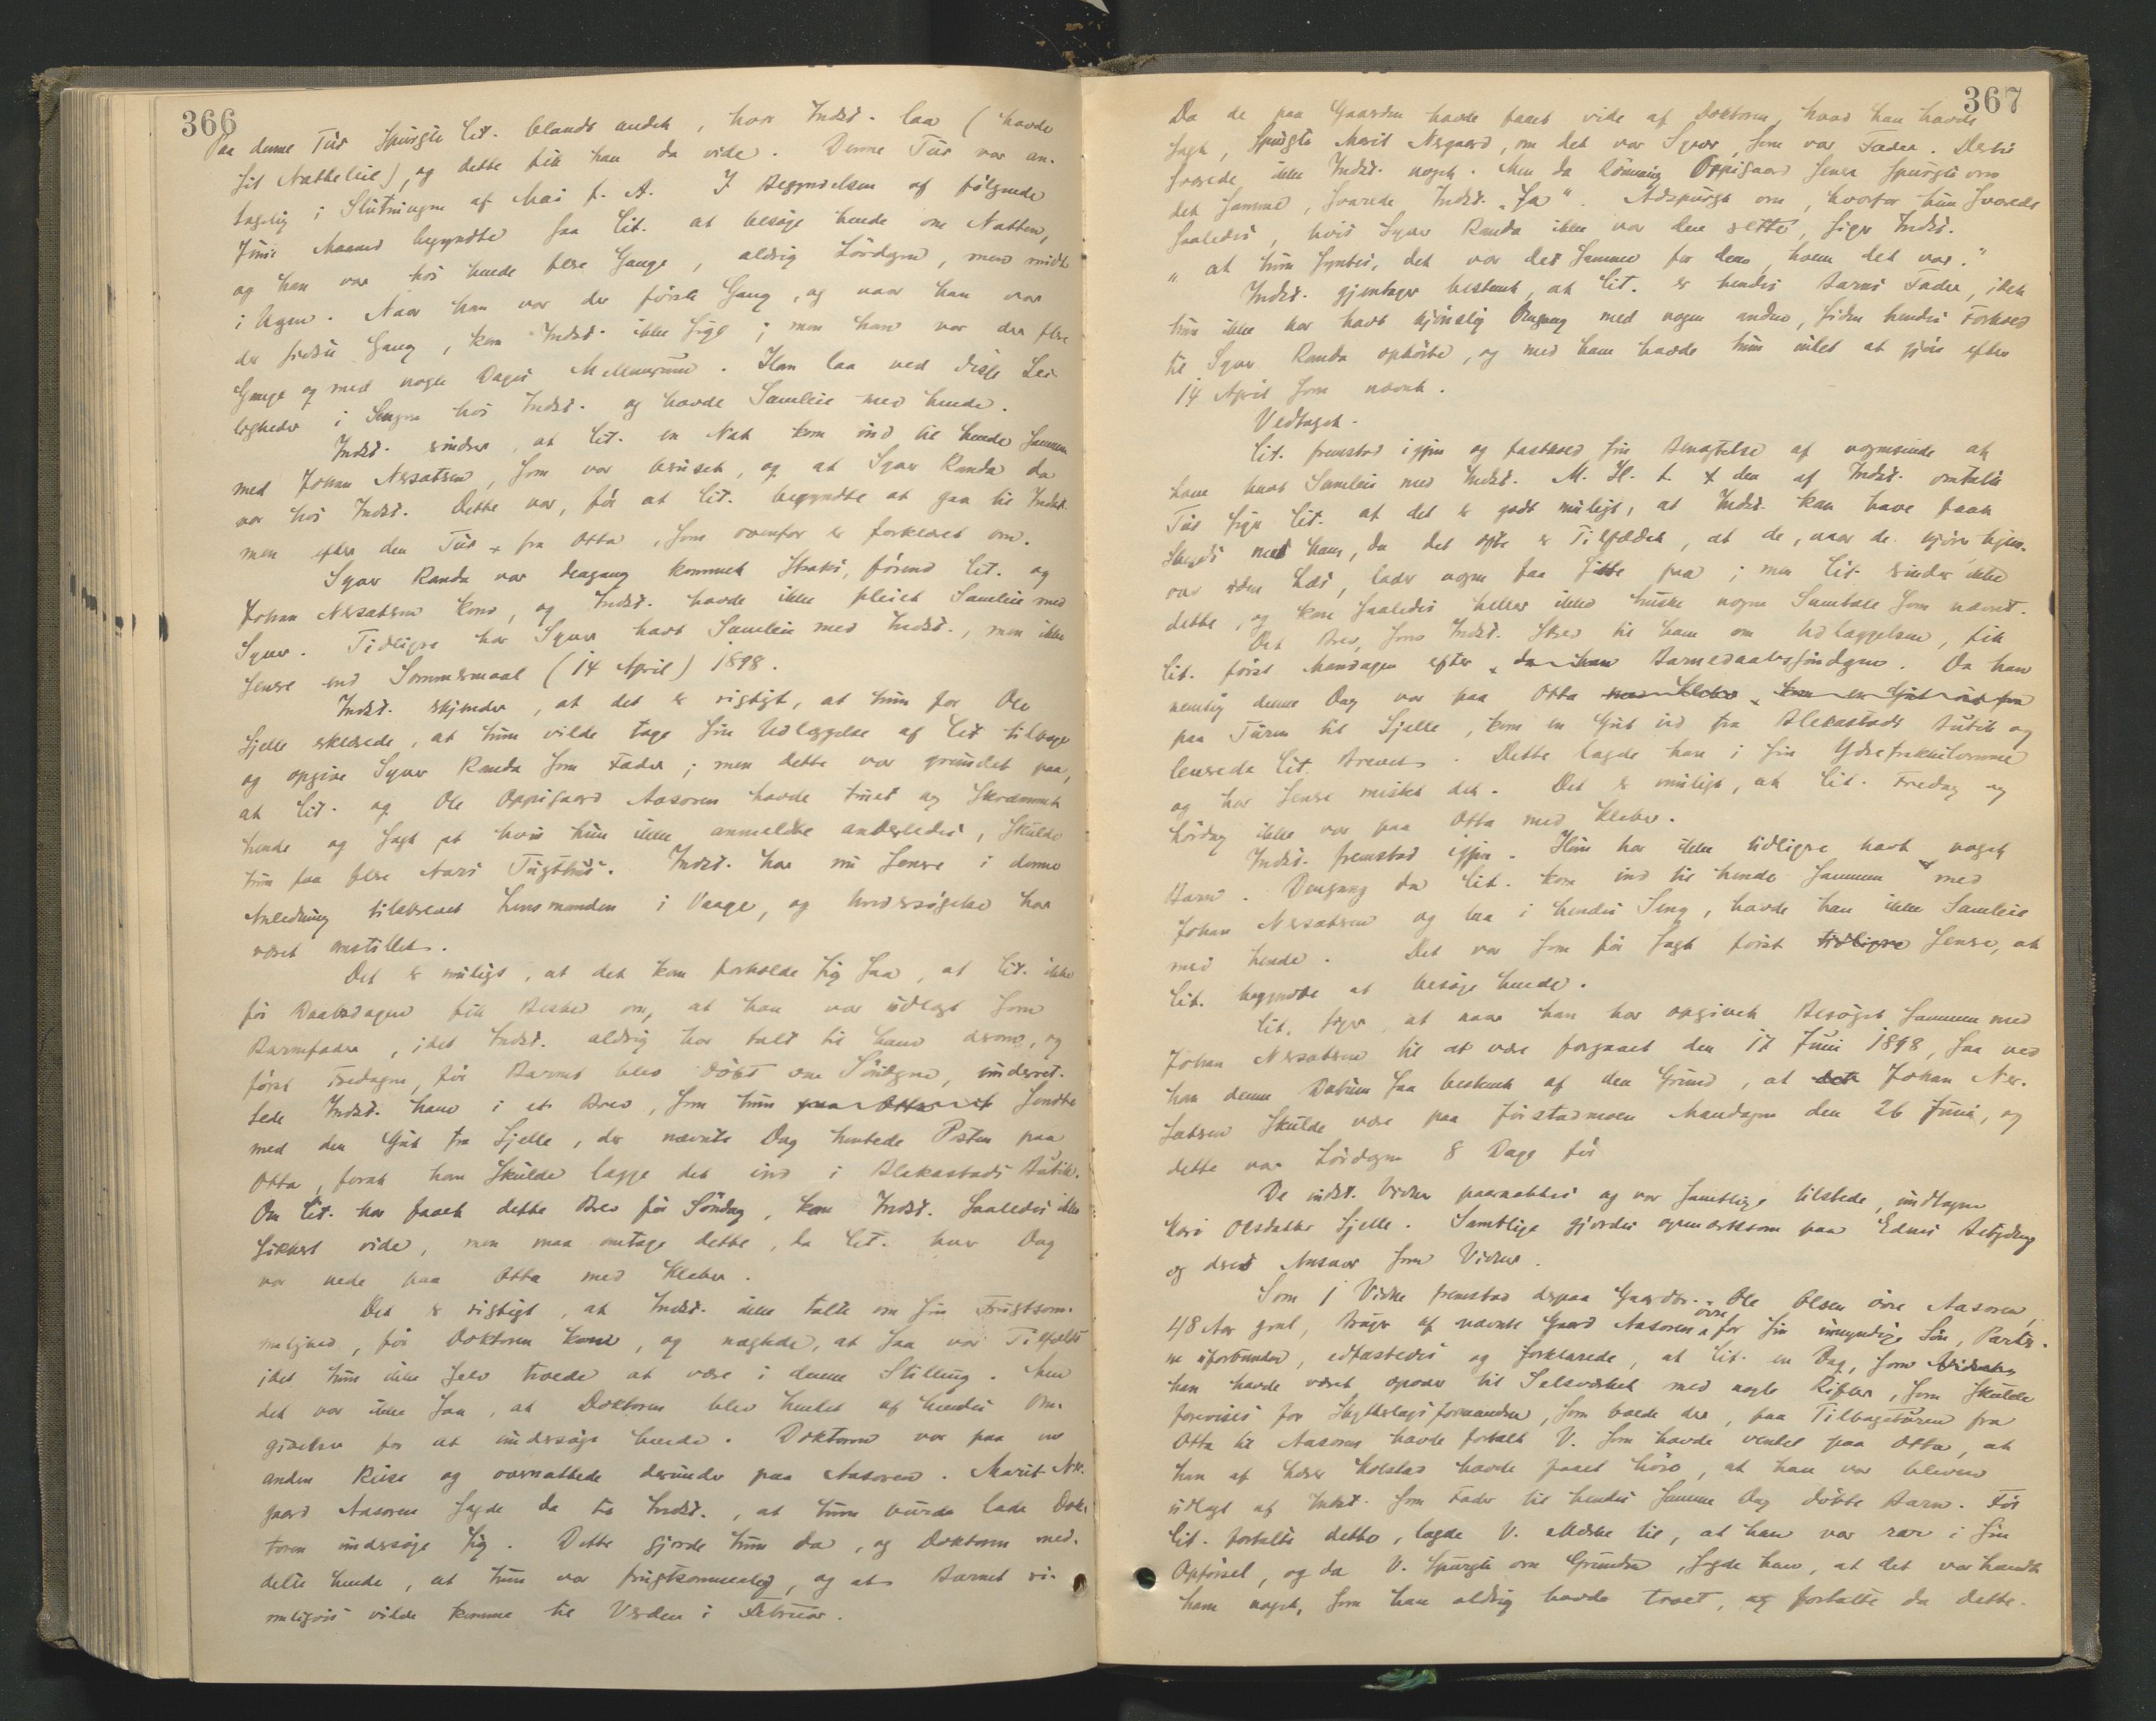 366
Paa denne Tur spurgte Cit. blandt andet, hvor Indst. laa (havde
sit Natteleie), og dette fik han da vide. Denne Tur var an-
tagelig i Slutningen af Mai f. A. I Begyndelsen af følgende
Juni Maaned begyndte saa Cit. at besøge hende om Natten,
og han var hos hende flere Gange, aldrig Lørdagen, men midt
i Ugen. Naar han var der første Gang, og naar han var
der sidste Gang, kan Indst. ikke sige; men han var der flere
Gange og med nogle Dages Mellemrum. Han laa ved disse Lei-
ligheder i Sengen hos Indst. og havde Samleie med hende.
Indst. erindrer, at Cit. en Nat kom ind til hende sammen
med Johan Nersatsen, som var beruset, og at Syver Randa da
var hos Indst. Dette var, før at Cit. begyndte at gaa til Indst.
men efter den Tur fra Otta, som ovenfor er forklaret om.
Syver Randa var dengang kommet straks, førend Cit. og
Johan Nersatsen kom, og Indst. havde ikke pleiet Samleie med
Syver. Tidligere har Syver havt Samleie med Indst., men ikke
senere end Sommermaal (14 April) 1898.
Indst. erkjender, at det er rigtigt, at hun for Ole
Sjelle erklærede, at hun vilde tage sin Udlæggelse af Cit. tilbage
og opgive Syver Randa som Fader; men dette var grundet paa,
at Cit. og Ole Oppigaard Aasoren havde truet og skræmmet
hende og sagt, at hvis hun ikke anmeldte anderledes, skulde
hun faa flere Aars Tugthus. Indst. har nu senere i denne
Anledning tilskrevet Lensmanden i Vaage, og Undersøgelse har
været anstillet.
Det er muligt, at det kan forholde sig saa, at Cit. ikke
før Daabsdagen fik Beske om, at han var udlagt som
Barnefader, idet Indst. aldrig har talt til ham derom, og
først Fredagen, før Barnet blev døbt om Søndagen, underret-
tede Indst. ham i et Brev, som hun sendte
med den Gut fra Sjelle, der nævnte Dag hentede Posten paa
Otta, forat han skulde lægge det ind i Blekastads Butik.
Om Cit. har faaet dette Brev før Søndag, kan Indst. saaledes ikke
sikkert vide, men maa antage dette, da Cit. hver Dag
var nede paa Otta med Kleber.
Det er rigtigt, at Indst. ikke talte om sin Frugtsom-
melighed, før Doktoren kom, og nægtede, at saa var Tilfældet
idet hun ikke selv troede at være i denne Stilling. Men
det var ikke saa, at Doktoren blev hentet af hendes Om-
givelser for at undersøge hende. Doktoren var paa en
anden Reise og overnattede derunder paa Aasoren. Marit Ner-
gaard Aasoren sagde da til Indst., at hun burde lade Dok-
toren undersøge sig. Dette gjorde hun da, og Doktoren med-
delte hende, at hun var frugtsommelig, og at Barnet ri-
meligvis vilde komme til Verden i Februar.
367
Da de paa Gaarden havde faaet vide af Doktoren, hvad han havde
sagt, spurgte Marit Nergaard, om det var Syver, som var Fader. Dertil
svarede ikke Indst. noget. Men da Rønnaug Oppigaard senere spurgte om
det samme, svarede Indst. "Ja". Adspurgt om, hvorfor hun svarede
saaledes, hvis Syver Randa ikke var den rette, siger Indst.
"at hun syntes, det var det samme for dem, hvem det var."
Indst. gjentager bestemt, at Cit. er hendes Barns Fader, idet
hun ikke har havt kjønslig Omgang med nogen anden, siden hendes Forhold
til Syver Randa ophørte, og med ham havde hun intet at gjøre efter
14 April som nævnt.
Vedtaget.
Cit. fremstod igjen og fastholdt sin Benægtelse af nogensinde at
have havt Samleie med Indst. M. H. t. den af Indst. omtalte
Tur siger Cit. at det er godt muligt, at Indst. kan have faaet
Skyds med ham, da det ofte er Tilfældet, at de, naar de kjører hjem-
over uden Læs, lader nogen faa sidde paa; men Cit. erindrer ikke
dette, og kan saaledes heller ikke huske nogen Samtale som nævnt.
Det Brev, som Indst. skrev til ham om Udlæggelsen, fik
Cit. først Mandagen efter da han Barnedaabssøndagen. Da han
nemlig denne Dag var paa Otta med Kleber, kom en Gut ind fra
paa Turen til Sjelle, kom en Gut ud fra Blekastads Butik og
leverede Cit. Brevet. Dette lagde han i sin Ydrefrakkelomme
og har senere mistet det. Det er muligt, at Cit. Fredag og
Lørdag ikke var paa Otta med Kleber.
Indst. fremstod igjen. Hun har ikke tidligere havt noget
Barn. Dengang da Cit. kom ind til hende sammen med
Johan Nersatsen og laa i hendes Seng, havde han ikke Samleie
med hende. Det var som før sagt først tidligere senere, at
Cit. begyndte at besøge hende.
Cit. siger, at naar han har opgivet Besøget sammen med
Johan Nersatsen til at være forgaaet den 17 Juni 1898, saa ved
han denne Datum saa bestemt af den Grund, at det Johan Ner-
satsen skulde være paa Jørstadmoen Mandagen den 26 Juni, og
dette var Lørdagen 8 Dage før
De indst. Vidner paaraabtes og var samtlige tilstede, undtagen
Kari Olsdatter Sjelle. Samtlige gjordes opmærksom paa Edens Betydning
og deres Ansvar som Vidner.
Som 1 Vidne fremstod derpaa Gaardbr. Ole Olsen øvre Aasoren,
48 Aar gml, Bruger af nævnte Gaard Aasoren øvre for sin umyndige Søn, Parter-
ne uforbunden, edfæstedes og forklarede, at Cit. en Dag, som Vidnet
han havde været opover til Selsverket med nogle Rifler, som skulde
forevises for Skytterlagsformanden, som boede der, paa Tilbageturen fra
Otta til Aasoren havde fortalt V. som havde ventet paa Otta, at
han af Kolstad havde faaet høre, at han var bleven
udlagt af Indst. som Fader til hendes samme Dag døbte Barn. Før
Cit. fortalte dette, lagde V. Mærke til, at han var rar i sin
Opførsel, og da V. spurgte om Grunden, sagde han, at det var hændt
ham noget, som han aldrig havde troet, og fortalte da dette.